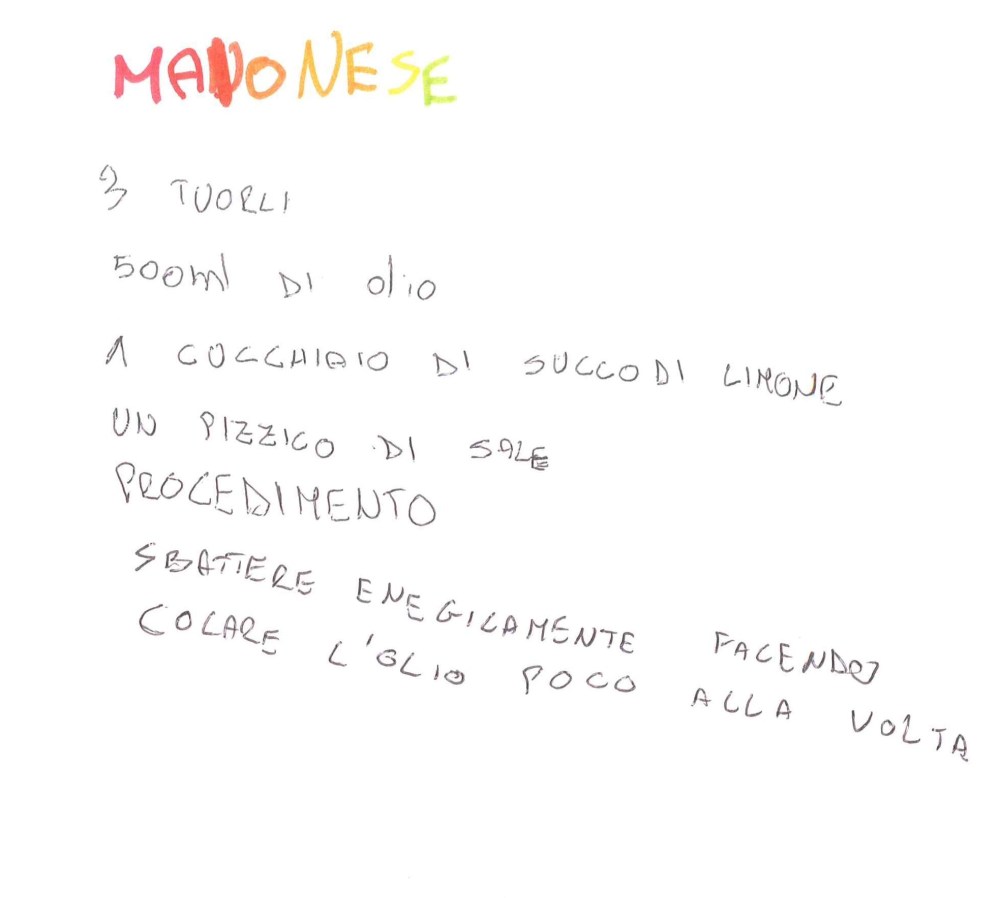 MAIONESE
3 TUORLI
500ml DI olio
1 CUCCHIAIO DI SUCCO DI LIMONE
UN PIZZICO DI SALE
PROCEDIMENTO
SBATTERE ENEGICAMENTE FACENDO
COLARE L'OLIO POCO ALLA VOLTA